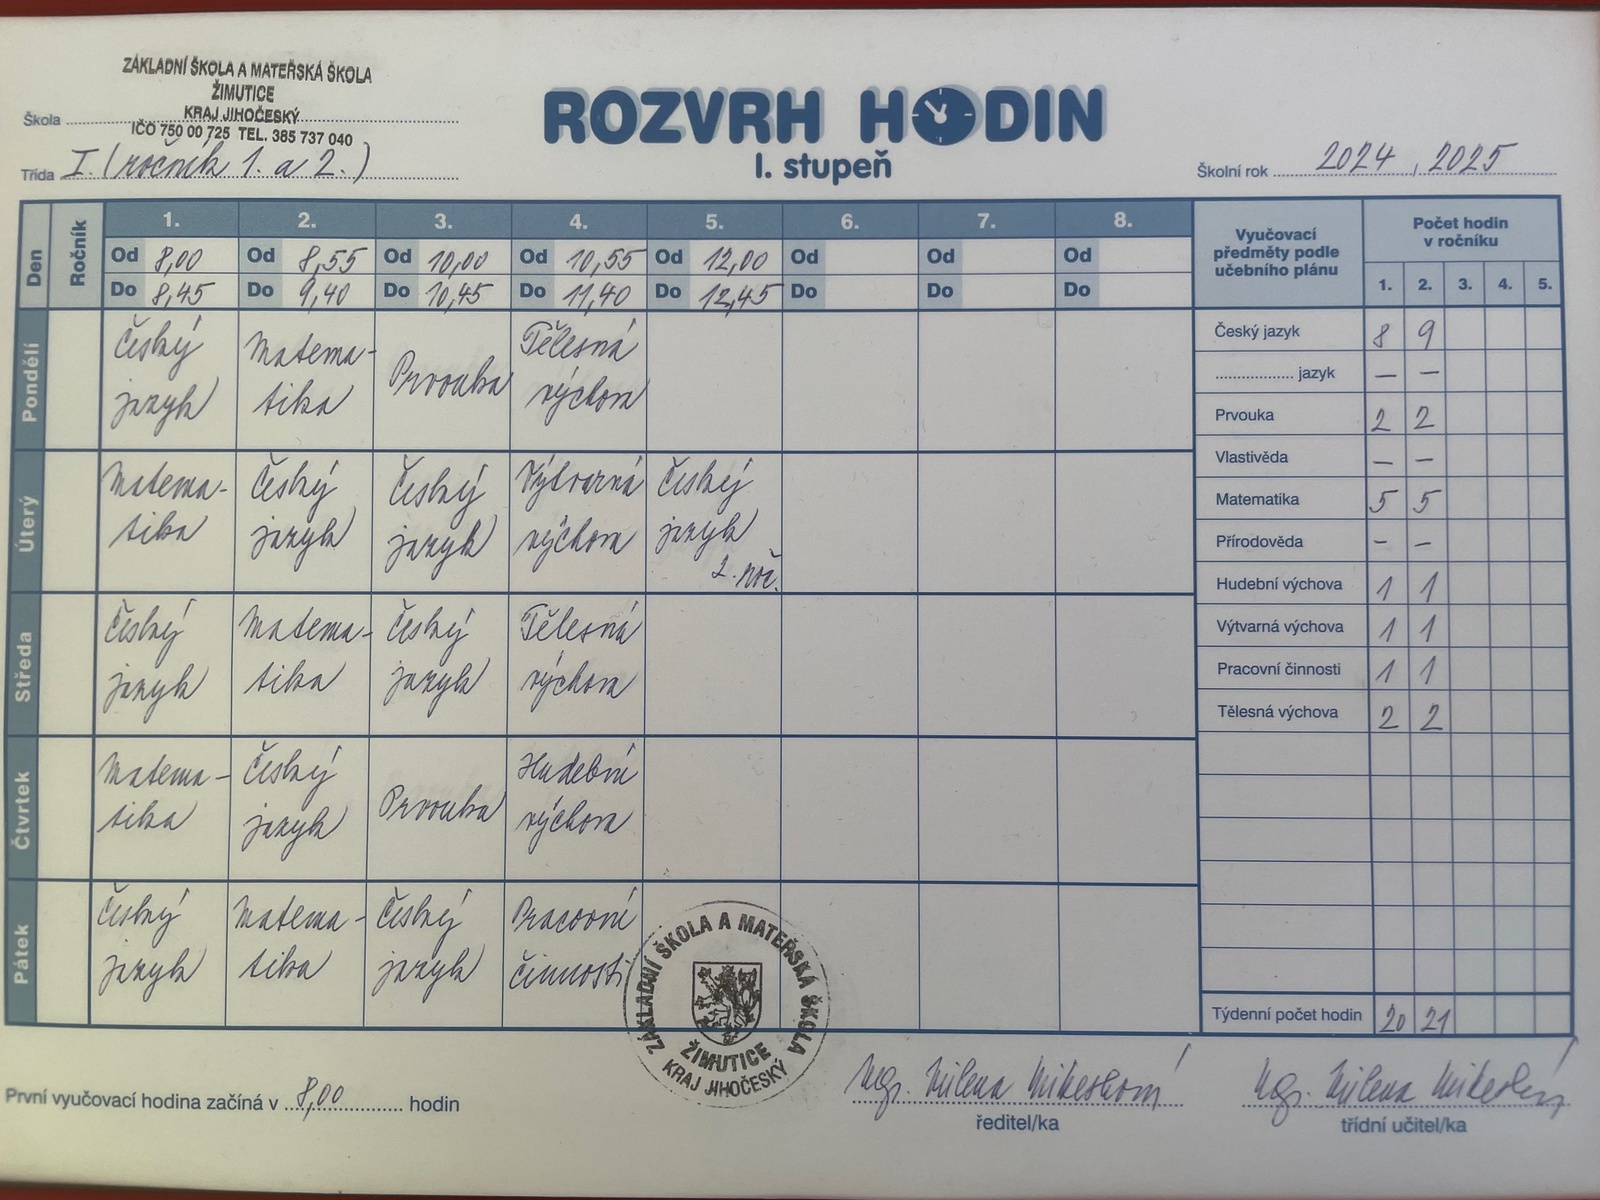 ZÁKLADNÍ ŠKOLA A MATEŘSKÁ ŠKOLA
ŽIMUTICE
KRAJ JIHOČESKÝ
IČO 750 00 725 TEL. 385 737 040
Škola
Třída I. (ročník 1. a 2.)
ROZVRH HODIN
I. stupeň
Školní rok 2024, 2025
Den Ročník 1. 2. 3. 4. 5. 6. 7. 8.
Od 8,00 Od 8,55 Od 10,00 Od 10,55 Od 12,00 Od Od Od
Do 8,45 Do 9,40 Do 10,45 Do 11,40 Do 12,45 Do Do Do
Pondělí
Český jazyk
Matema-
tika
Prvouka
Tělesná
výchova
Úterý
Matema-
tika
Český
jazyk
Český
jazyk
Výtvarná
výchova
Český
jazyk
2. roč.
Středa
Český
jazyk
Matema-
tika
Český
jazyk
Tělesná
výchova
Čtvrtek
Matema-
tika
Český
jazyk
Prvouka
Hudební
výchova
Pátek
Český
jazyk
Matema-
tika
Český
jazyk
Pracovní
činnosti
Vyučovací
předměty podle
učebního plánu
Počet hodin
v ročníku
1. 2. 3. 4. 5.
Český jazyk 8 9
jazyk — —
Prvouka 2 2
Vlastivěda — —
Matematika 5 5
Přírodověda — —
Hudební výchova 1 1
Výtvarná výchova 1 1
Pracovní činnosti 1 1
Tělesná výchova 2 2
Týdenní počet hodin 20 21
ZÁKLADNÍ ŠKOLA A MATEŘSKÁ ŠKOLA
ŽIMUTICE
KRAJ JIHOČESKÝ
První vyučovací hodina začíná v 8,00 hodin
Mgr. Milena Mikesková
ředitel/ka
Mgr. Milena
třídní učitel/ka